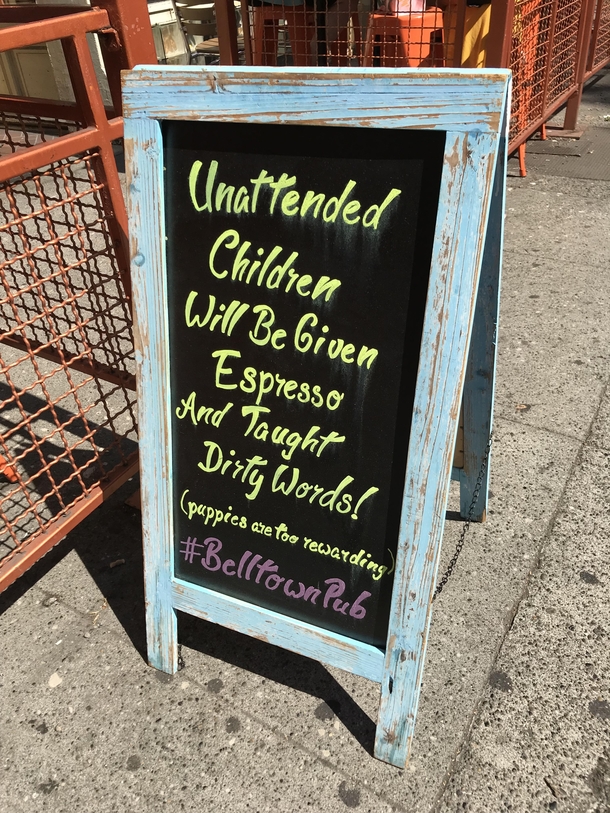 Unattended
Children
Will Be Given
Espresso
And Taught
Dirty Words!
(puppies are too rewarding)
#BelltownPub